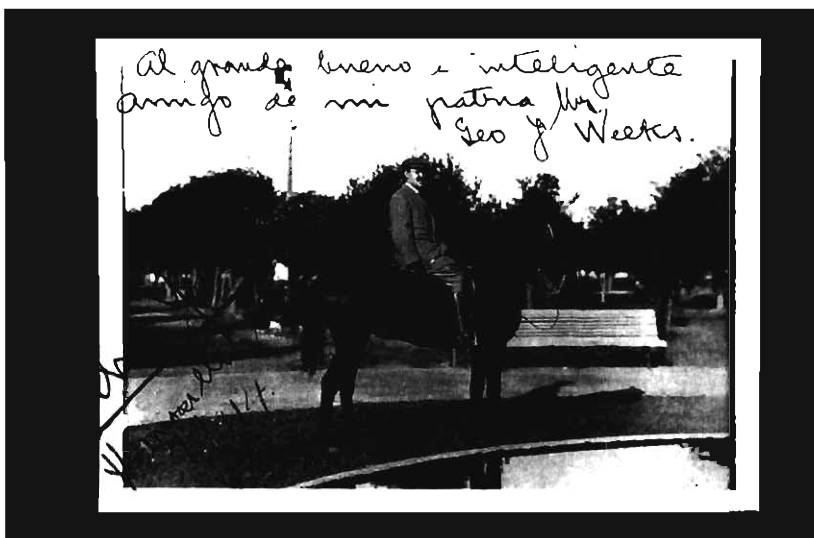 Al grande bueno e inteligente
amigo de mi patria Mr.
Geo J Weeks.